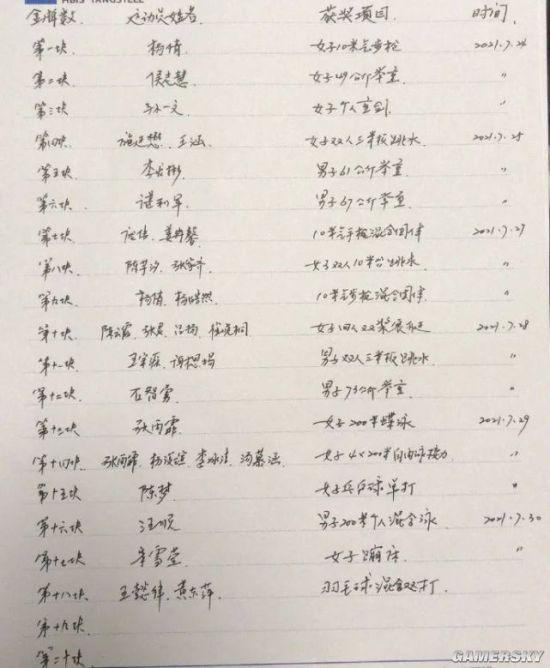 HBIS TANGSTEEL
金牌数 运动员姓名 获奖项目 时间
第一块 杨倩 女子10米气步枪 2021.7.24
第二块 侯志慧 女子49公斤举重 〃
第三块 孙一文 女子个人重剑 〃
第四块 施廷懋、王涵 女子双人三米板跳水 2021.7.25
第五块 李发彬 男子61公斤举重 〃
第六块 谌利军 男子67公斤举重 〃
第七块 庞伟、姜冉馨 10米气手枪混合团体 2021.7.27
第八块 陈芋汐、张家齐 女子双人10米台跳水 〃
第九块 杨倩、杨皓然 10米气步枪混合团体 〃
第十块 陈云霞、张灵、吕扬、崔晓桐 女子四人双桨展艇 2021.7.28
第十一块 王宗源、谢思埸 男子双人三米板跳水 〃
第十二块 石智勇 男子73公斤举重 〃
第十三块 张雨霏 女子200米蝶泳 2021.7.29
第十四块 张雨霏、杨浚瑄、李冰洁、汤慕涵 女子4×200米自由泳接力 〃
第十五块 陈梦 女子乒乓球单打 〃
第十六块 汪顺 男子200米个人混合泳 2021.7.30
第十七块 朱雪莹 女子蹦床 〃
第十八块 王懿律、黄东萍 羽毛球混合双打
第十九块
第二十块
GAMERSKY